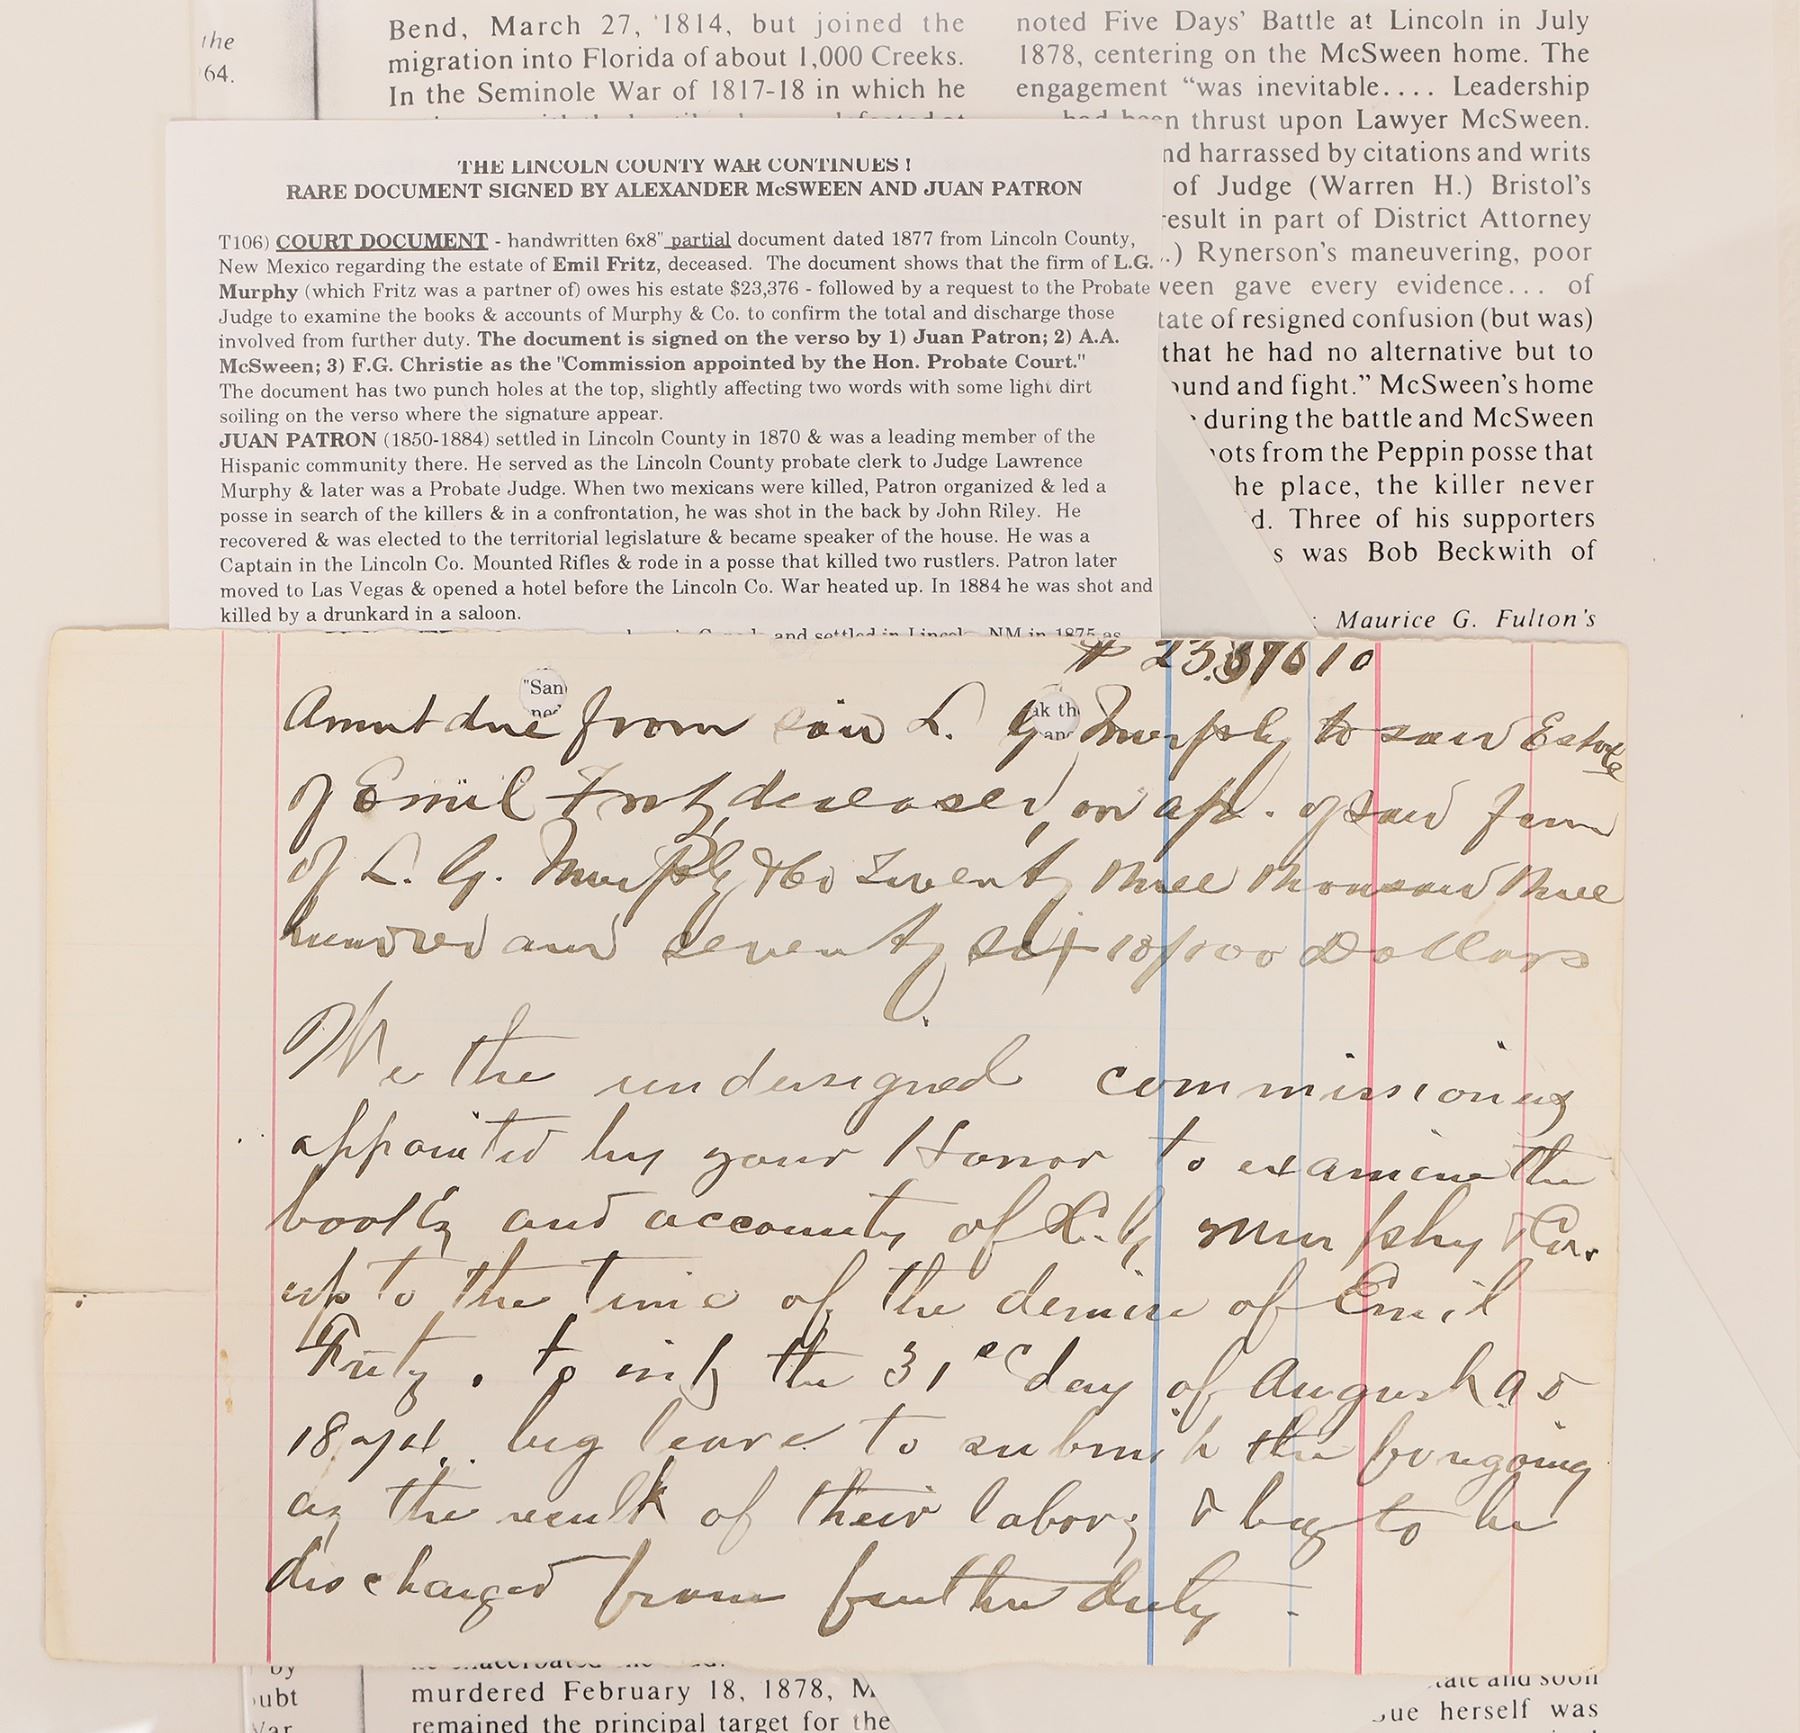 the
64.
Bend, March 27, 1814, but joined the
migration into Florida of about 1,000 Creeks.
In the Seminole War of 1817-18 in which he
noted Five Days' Battle at Lincoln in July
1878, centering on the McSween home. The
engagement "was inevitable.... Leadership
had been thrust upon Lawyer McSween.
nd harrassed by citations and writs
of Judge (Warren H.) Bristol's
result in part of District Attorney
.) Rynerson's maneuvering, poor
ween gave every evidence... of
tate of resigned confusion (but was)
that he had no alternative but to
ound and fight." McSween's home
during the battle and McSween
ots from the Peppin posse that
he place, the killer never
d. Three of his supporters
s was Bob Beckwith of
: Maurice G. Fulton's
THE LINCOLN COUNTY WAR CONTINUES!
RARE DOCUMENT SIGNED BY ALEXANDER McSWEEN AND JUAN PATRON
T106) COURT DOCUMENT - handwritten 6x8" partial document dated 1877 from Lincoln County,
New Mexico regarding the estate of Emil Fritz, deceased. The document shows that the firm of L.G.
Murphy (which Fritz was a partner of) owes his estate $23,376 - followed by a request to the Probate
Judge to examine the books & accounts of Murphy & Co. to confirm the total and discharge those
involved from further duty. The document is signed on the verso by 1) Juan Patron; 2) A.A.
McSween; 3) F.G. Christie as the "Commission appointed by the Hon. Probate Court."
The document has two punch holes at the top, slightly affecting two words with some light dirt
soiling on the verso where the signature appear.
JUAN PATRON (1850-1884) settled in Lincoln County in 1870 & was a leading member of the
Hispanic community there. He served as the Lincoln County probate clerk to Judge Lawrence
Murphy & later was a Probate Judge. When two mexicans were killed, Patron organized & led a
posse in search of the killers & in a confrontation, he was shot in the back by John Riley. He
recovered & was elected to the territorial legislature & became speaker of the house. He was a
Captain in the Lincoln Co. Mounted Rifles & rode in a posse that killed two rustlers. Patron later
moved to Las Vegas & opened a hotel before the Lincoln Co. War heated up. In 1884 he was shot and
killed by a drunkard in a saloon.
and settled in Lincoln, NM in 1875 as
$ 23.376 10
"San
ned
ak the
and
Amnt due from said L. G Murphy to said Estate
of Emil Fritz, deceased, on a/c. of said firm
of L. G. Murphy & Co Twenty three thousand three
hundred and seventy six 10/100 Dollars
We the undersigned commissioners
appointed by your Honor to examine the
books and accounts of L. G. Murphy & Co.
up to the time of the demise of Emil
Fritz. to wit the 31st day of August A D
1874. beg leave to submit the foregoing
as the result of their labors & beg to be
discharged from further duty -
by
oubt
War
murdered February 18, 1878, M
remained the principal target for the
tate and soon
ue herself was